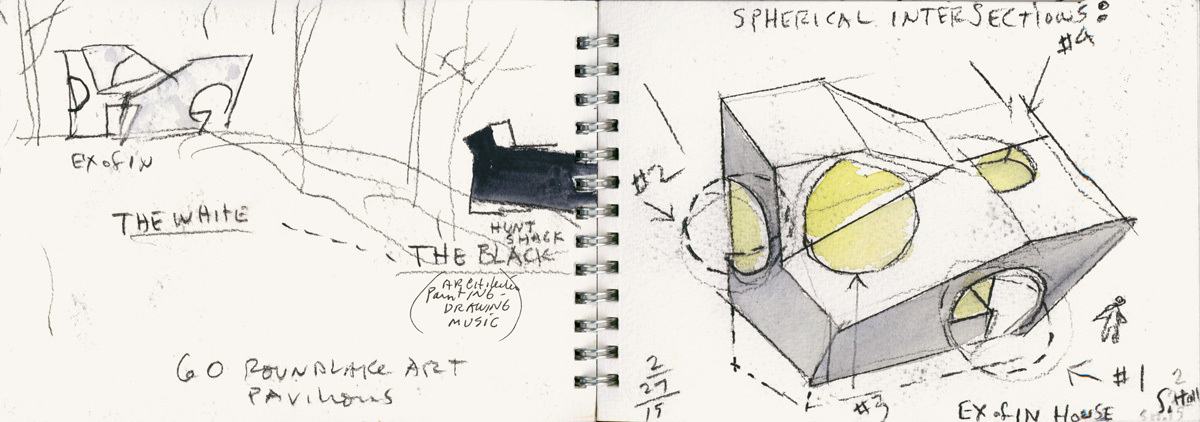 EX of IN
THE WHITE
HUNT
SHACK
THE BLACK
PAINTING -
DRAWING
MUSIC
ART
PAVILIONS
SPHERICAL INTERSECTIONS:
#4
#2
#3
#1
2
27
15
EX of IN HOUSE
2
S. Holl